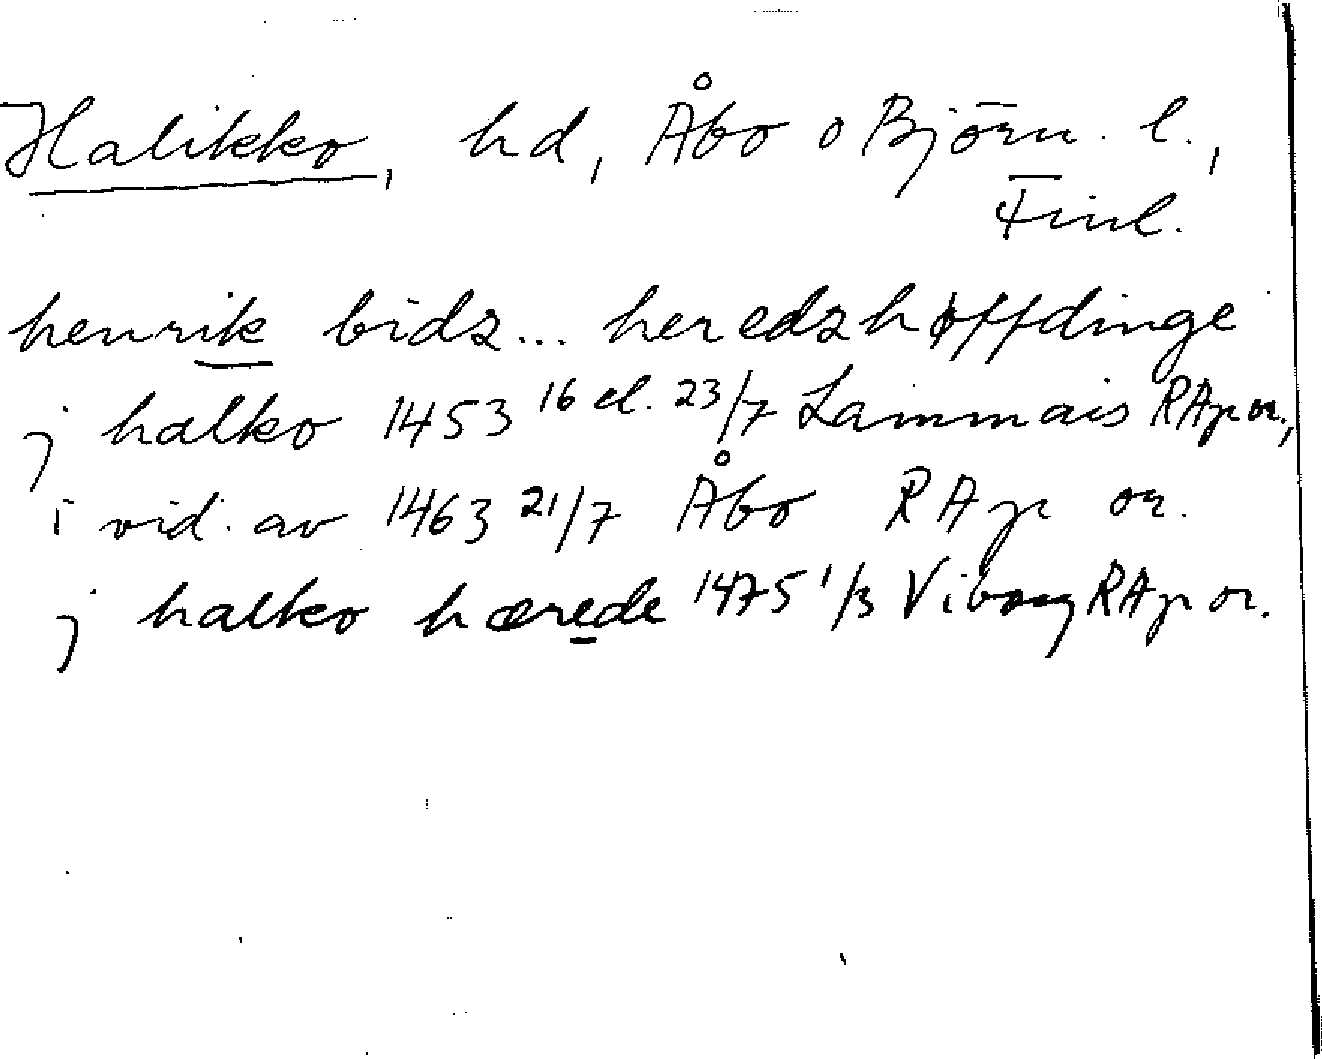 Halikko, hd, Åbo o Björn. l.,
Finl.
henrik bidz... heredzhøffdinge
j halko 1453 16 el. 23/7 Lammais RAp or.,
i vid. av 1463 21/7 Åbo RAp or.
j halko hærede 1475 1/3 Viborg RAp or.